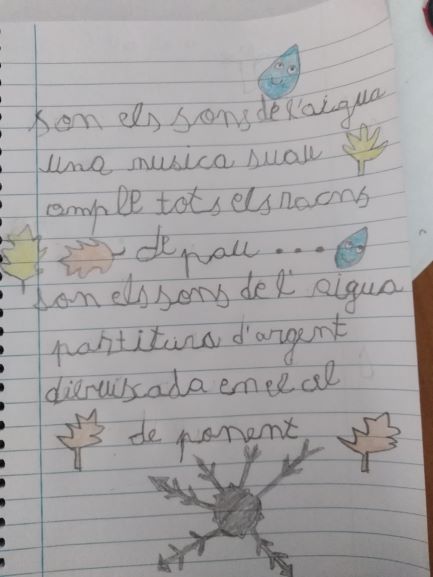 son els sons de l'aigua
una musica suau
omple tots els racons
de pau ....
son els sons de l'aigua
partitura d'argent
en el cel
de ponent